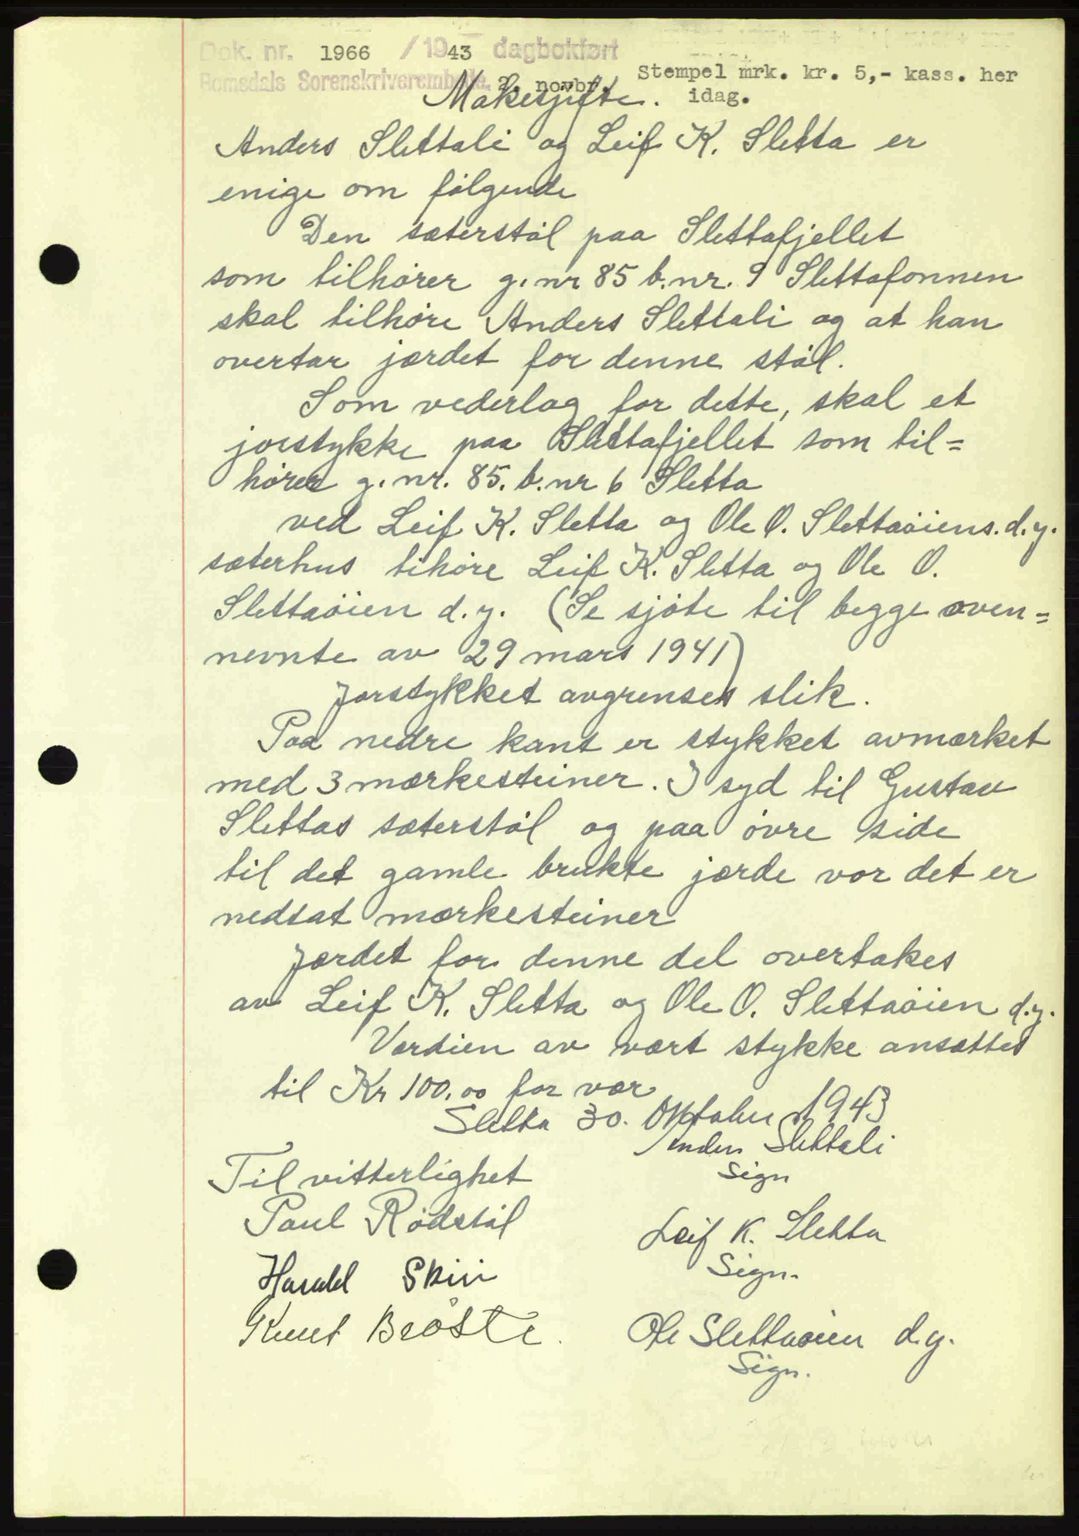 Dok. nr. 1966 /1943 dagbokført
Romsdals Sorenskriverembede. 2. novbr. Stempel mrk. kr. 5,- kass. her
idag.
Makeskjifte.
Anders Slettali og Leif K. Sletta er
enige om følgende
Den sæterstøl paa Slettafjellet
som tilhører g.nr 85 b.nr. 9 Slettafonnen
skal tilhøre Anders Slettali og at han
overtar jærdet for denne støl.
Som vederlag for dette, skal et
jorstykke paa Slettafjellet som til=
hører g.nr. 85. b.nr 6 Sletta
ved Leif K. Sletta og Ole O. Slettaøiens. d.y.
sæterhus tihøre Leif K. Sletta og Ole O.
Slettaøien d.y. (Se sjøte til begge oven=
nevnte av 29 mars 1941)
Jorstykket avgrenses slik.
Paa nedre kant er stykket avmærket
med 3 mærkesteiner. I syd til Gustav
Slettas sæterstøl og paa øvre side
til det gamle brukte jærde vor det er
nedsat mærkesteiner
Jærdet for denne del overtakes
av Leif K. Sletta og Ole O. Slettaøien d.y.
Værdien av vært stykke ansættes
til Kr 100.00 for vær
Sletta 30. Oktober 1943
Anders Slettali
Sign
Til vitterlighet
Paul Rødstøl
Leif K. Sletta
Sign.
Harald Skiri
Knut Brøste.
Ole Slettaøien d.y.
Sign.